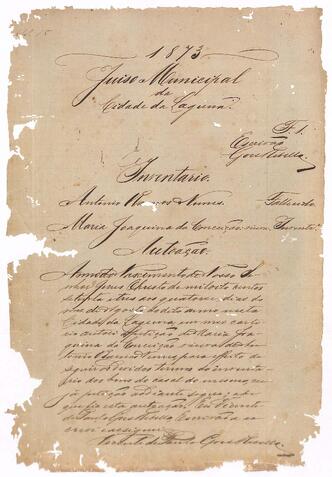 1873
Juiso Municipal
da
Cidade da Laguna
F. 1.
Escrivão
Inventario.
Antonio Nunes. Fallecido
Maria Joaquina da Conceição, viuva. Invent.
Autuação.
Anno do Nascimento de Nosso Se-
nhor Jesus Christo de mil oito centos
setenta e tres aos quatorze dias do
mez de Agosto do dito anno nesta
Cidade da Laguna em meu carto-
rio autuei a petição de Maria Joa-
quina da Conceição viuva de An-
tonio Nunes para effeito de
seguir os devidos termos do inventa-
rio dos bens do casal do mesmo, cu-
ja petição adiante segue; do
que fiz esta autuação. Eu Vicente
de Paulo Escrivão o es-
crevi e assignei.
Vicente de Paulo